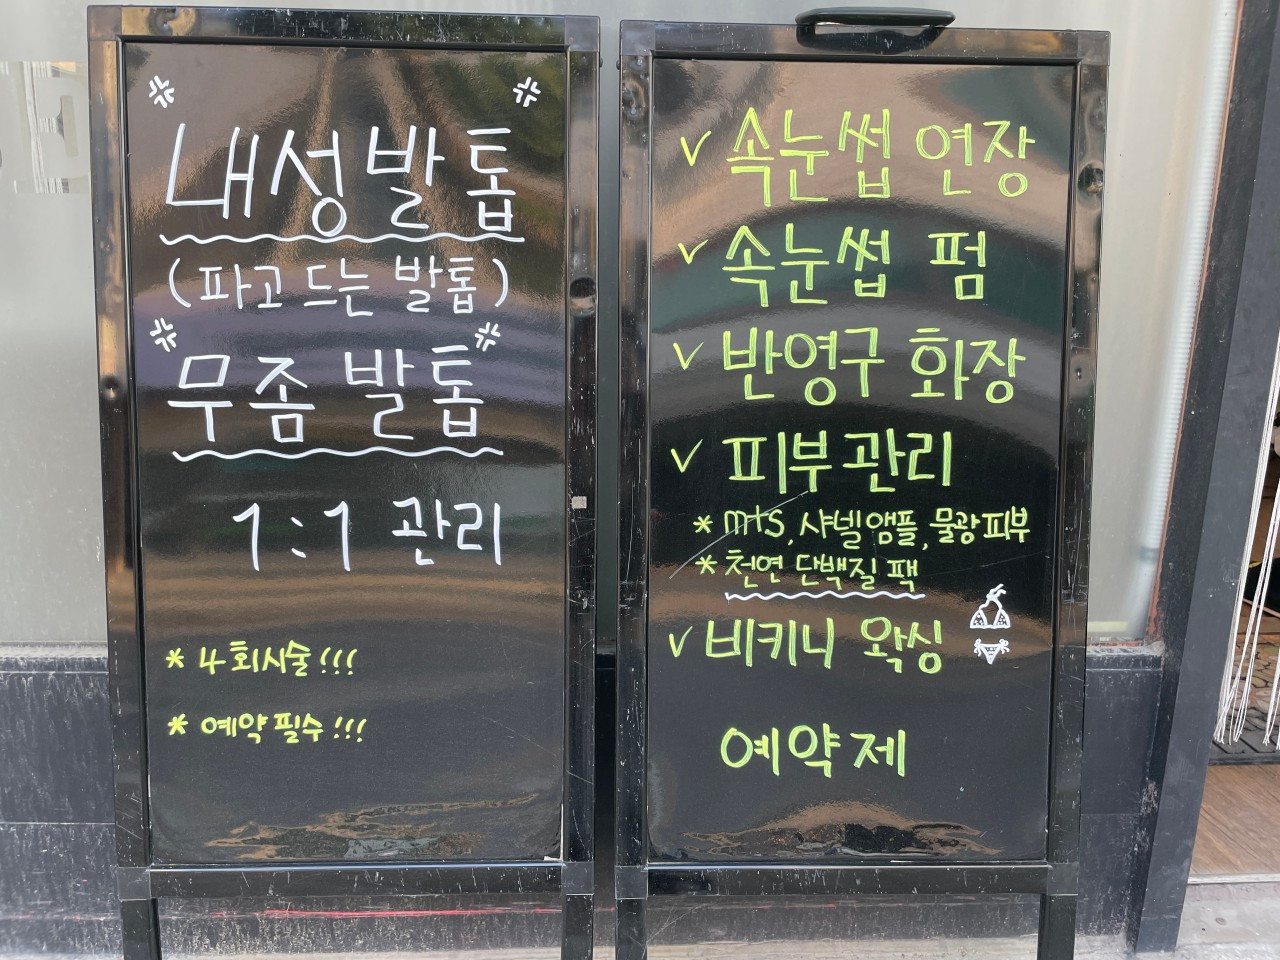 내성발톱
(파고드는 발톱)
무좀 발톱
1:1 관리
* 4회시술!!!
* 예약필수!!!
✓ 속눈썹 연장
✓ 속눈썹 펌
✓ 반영구 화장
✓ 피부관리
* mts, 샤넬앰플, 물광피부
* 천연 단백질 팩
✓ 비키니 왁싱
예약제